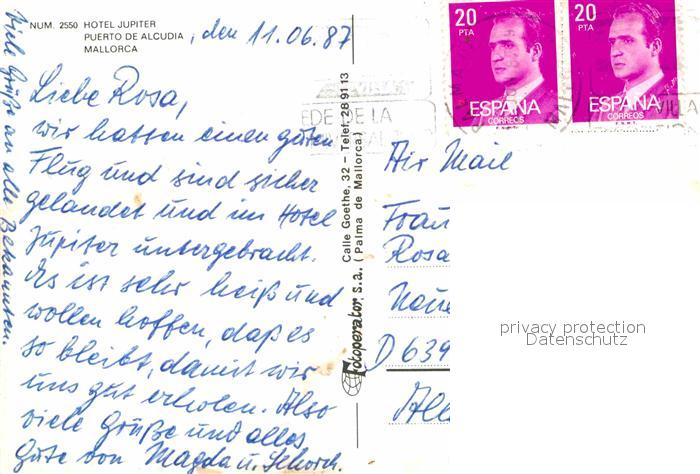 NUM. 2550 HOTEL JUPITER
PUERTO DE ALCUDIA
MALLORCA
, den 11.06.87
Liebe Rosa,
wir hatten einen guten
Flug und sind sicher
gelandet und im Hotel
Jupiter untergebracht.
Es ist sehr heiß und
wollen hoffen, daß es
so bleibt, damit wir
uns gut erholen. Also
viele Grüße und alles
Gute von Magda u.
Viele Grüße an alle Bekannten
Fotoperator, S.a. Calle Goethe, 32 – Telef. 28 91 13
(Palma de Mallorca)
20
PTA
ESPAÑA
CORREOS
F.N.M.T.
20
PTA
ESPAÑA
CORREOS
F.N.M.T.
EDE DE LA
VILLA
Air Mail
Frau
Rosa
D 639
privacy protection
Datenschutz